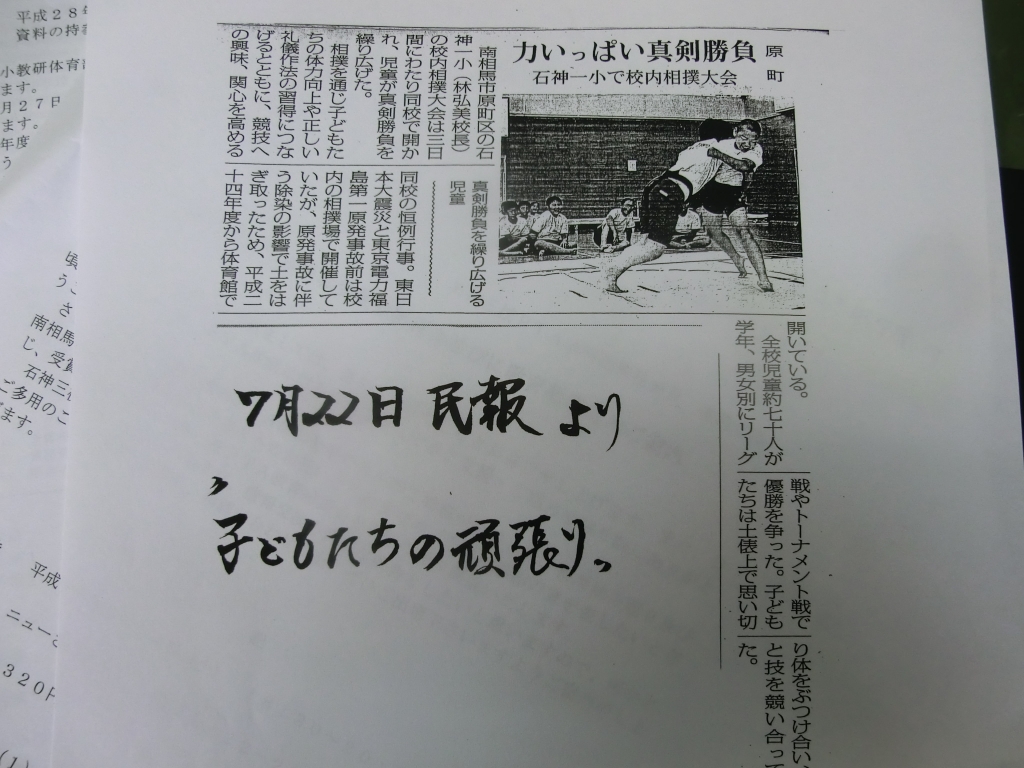 原町
力いっぱい真剣勝負
石神一小で校内相撲大会
南相馬市原町区の石
神一小（林弘美校長）
の校内相撲大会は三日
間にわたり同校で開か
れ、児童が真剣勝負を
繰り広げた。
相撲を通じ子どもた
ちの体力向上や正しい
礼儀作法の習得につな
げるとともに、競技へ
の興味、関心を高める
真剣勝負を繰り広げる
児童
同校の恒例行事。東日
本大震災と東京電力福
島第一原発事故前は校
内の相撲場で開催して
いたが、原発事故に伴
う除染の影響で土をは
ぎ取ったため、平成二
十四年度から体育館で
開いている。
全校児童約七十人が
学年、男女別にリーグ
戦やトーナメント戦で
優勝を争った。子ども
たちは土俵上で思い切
り体をぶつけ合い、
と技を競い合って
た。
7月22日 民報 より
〃子どもたちの頑張り〃
平成28年
資料の持
小教研体育
ます。
月27日
ます。
年度
う
頃
うこ
さ
南相馬
じ、受賞
石神三
ご多用のこ
ます。
平成
ニュー
320円
(1)